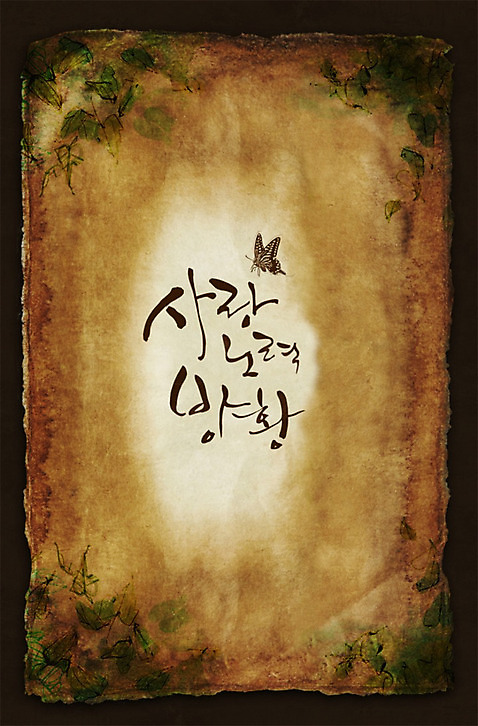 사랑
노력
방황